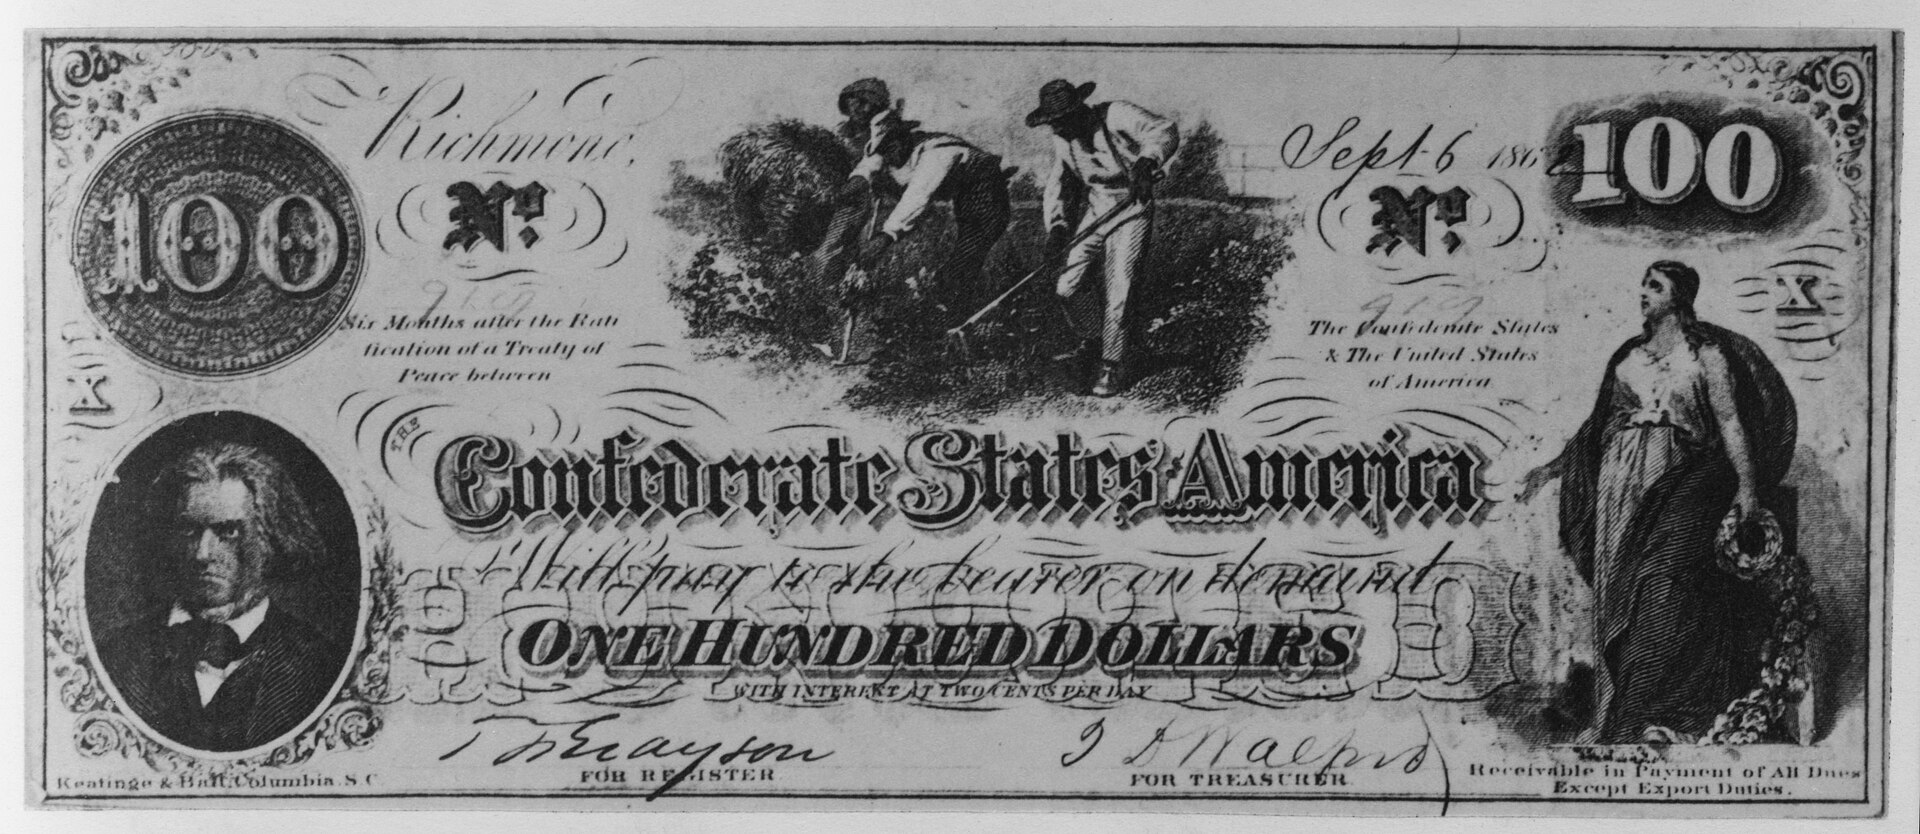 Richmond,
Sept 6 186
100
100
No.
No.
X
X
Six Months after the Rati
fication of a Treaty of
Peace between
The Confederate States
& The United States
of America
THE
Confederate States America
Will pay to the bearer on demand
ONE HUNDRED DOLLARS
HUNDRED
WITH INTEREST AT TWO CENTS PER DAY
FOR REGISTER
FOR TREASURER
Keatinge & Ball, Columbia. S.C
Receivable in Payment of All Dues
Except Export Duties.